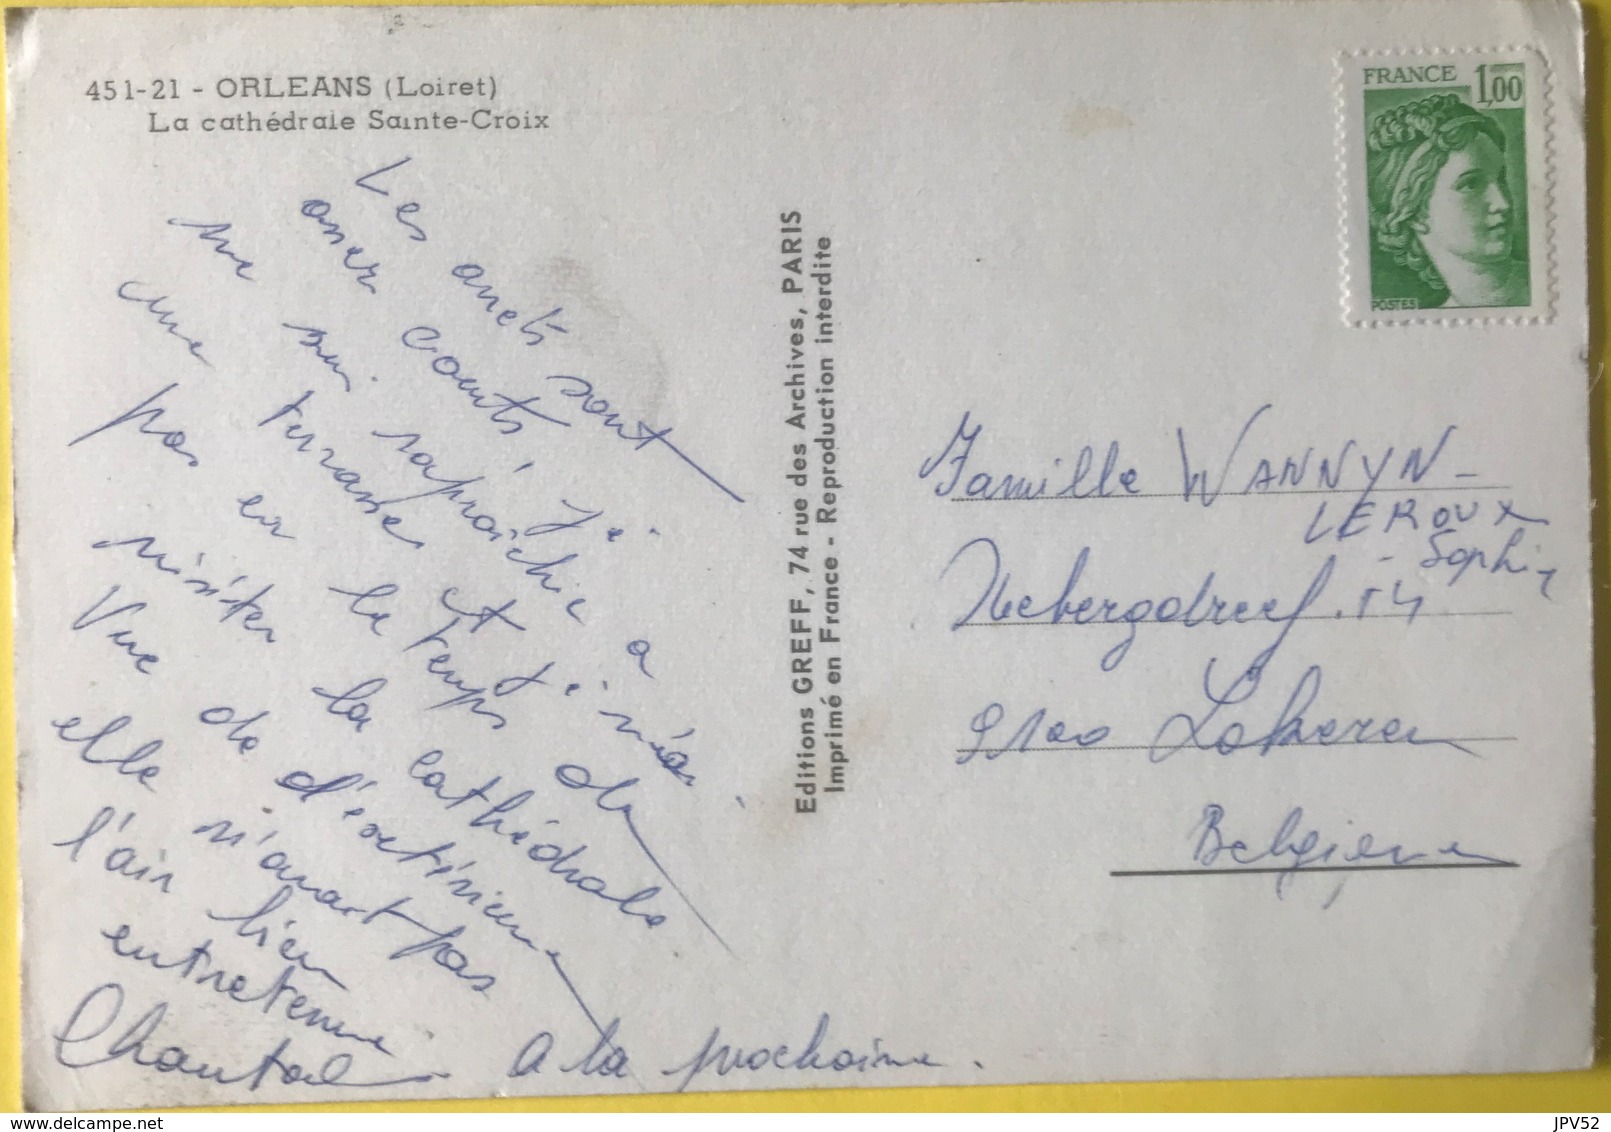 451-21 - ORLEANS (Loiret)
La cathédrale Sainte-Croix
FRANCE 1,00
POSTES
Les arrêts sont
assez courts, j'ai
me suis raproiché a
une terrasse et j'n'ai
pas eu le temps de
visiter la cathédrale.
Vue de d'exterieure
elle n'avait pas
l'air bien
entretenue
Chantal. A la prochaine.
Editions GREFF, 74 rue des Archives, PARIS
Imprimé en France - Reproduction interdite
Famille WANNYN-
LEROUX
Sophie
Hebergdreef. 14
9100 Lokeren
Belgique
delcampe.net
JPV52